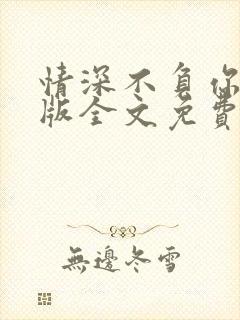 情深不负你
版全文免费
無邊冬雪